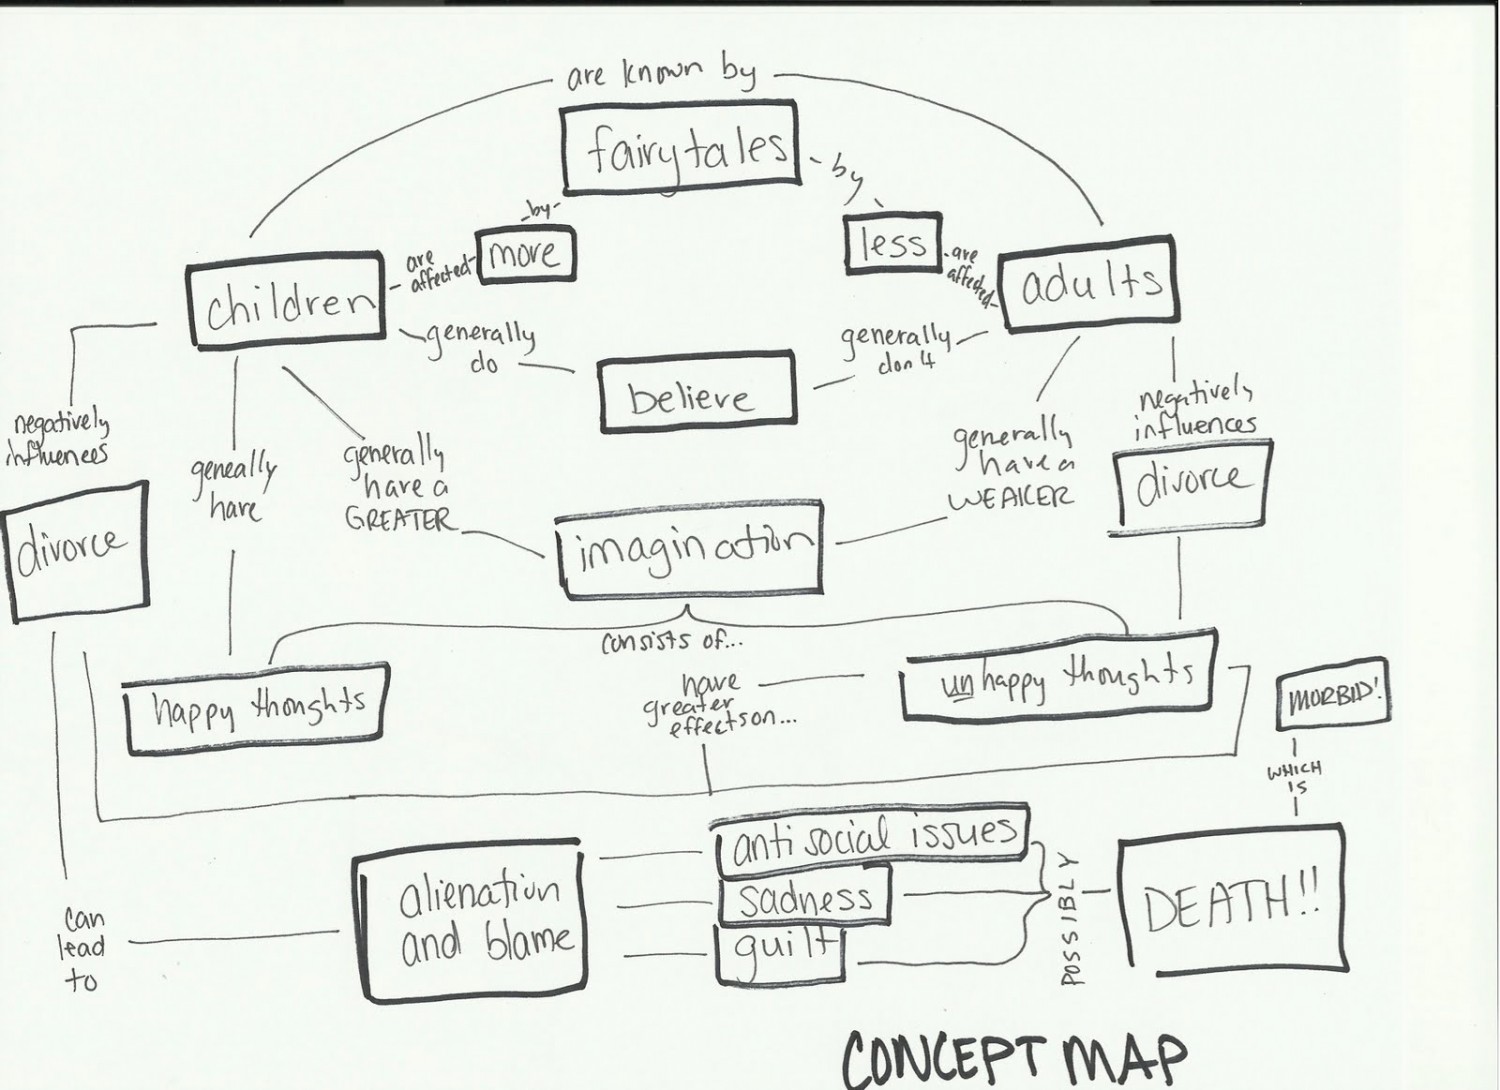 are known by
fairytales
by
by
more
less
are
affected
are
affected
children
adults
generally
do
generally
don't
believe
negatively
influences
negatively
influences
divorce
geneally
have
generally
have a
GREATER
generally
have a
WEAKER
imagination
divorce
consists of...
happy thoughts
have
greater
effects on...
unhappy thoughts
MORBID!
WHICH
IS
antisocial issues
sadness
guilt
alienation
and blame
can
lead
to
POSSIBLY
DEATH!!
CONCEPT MAP